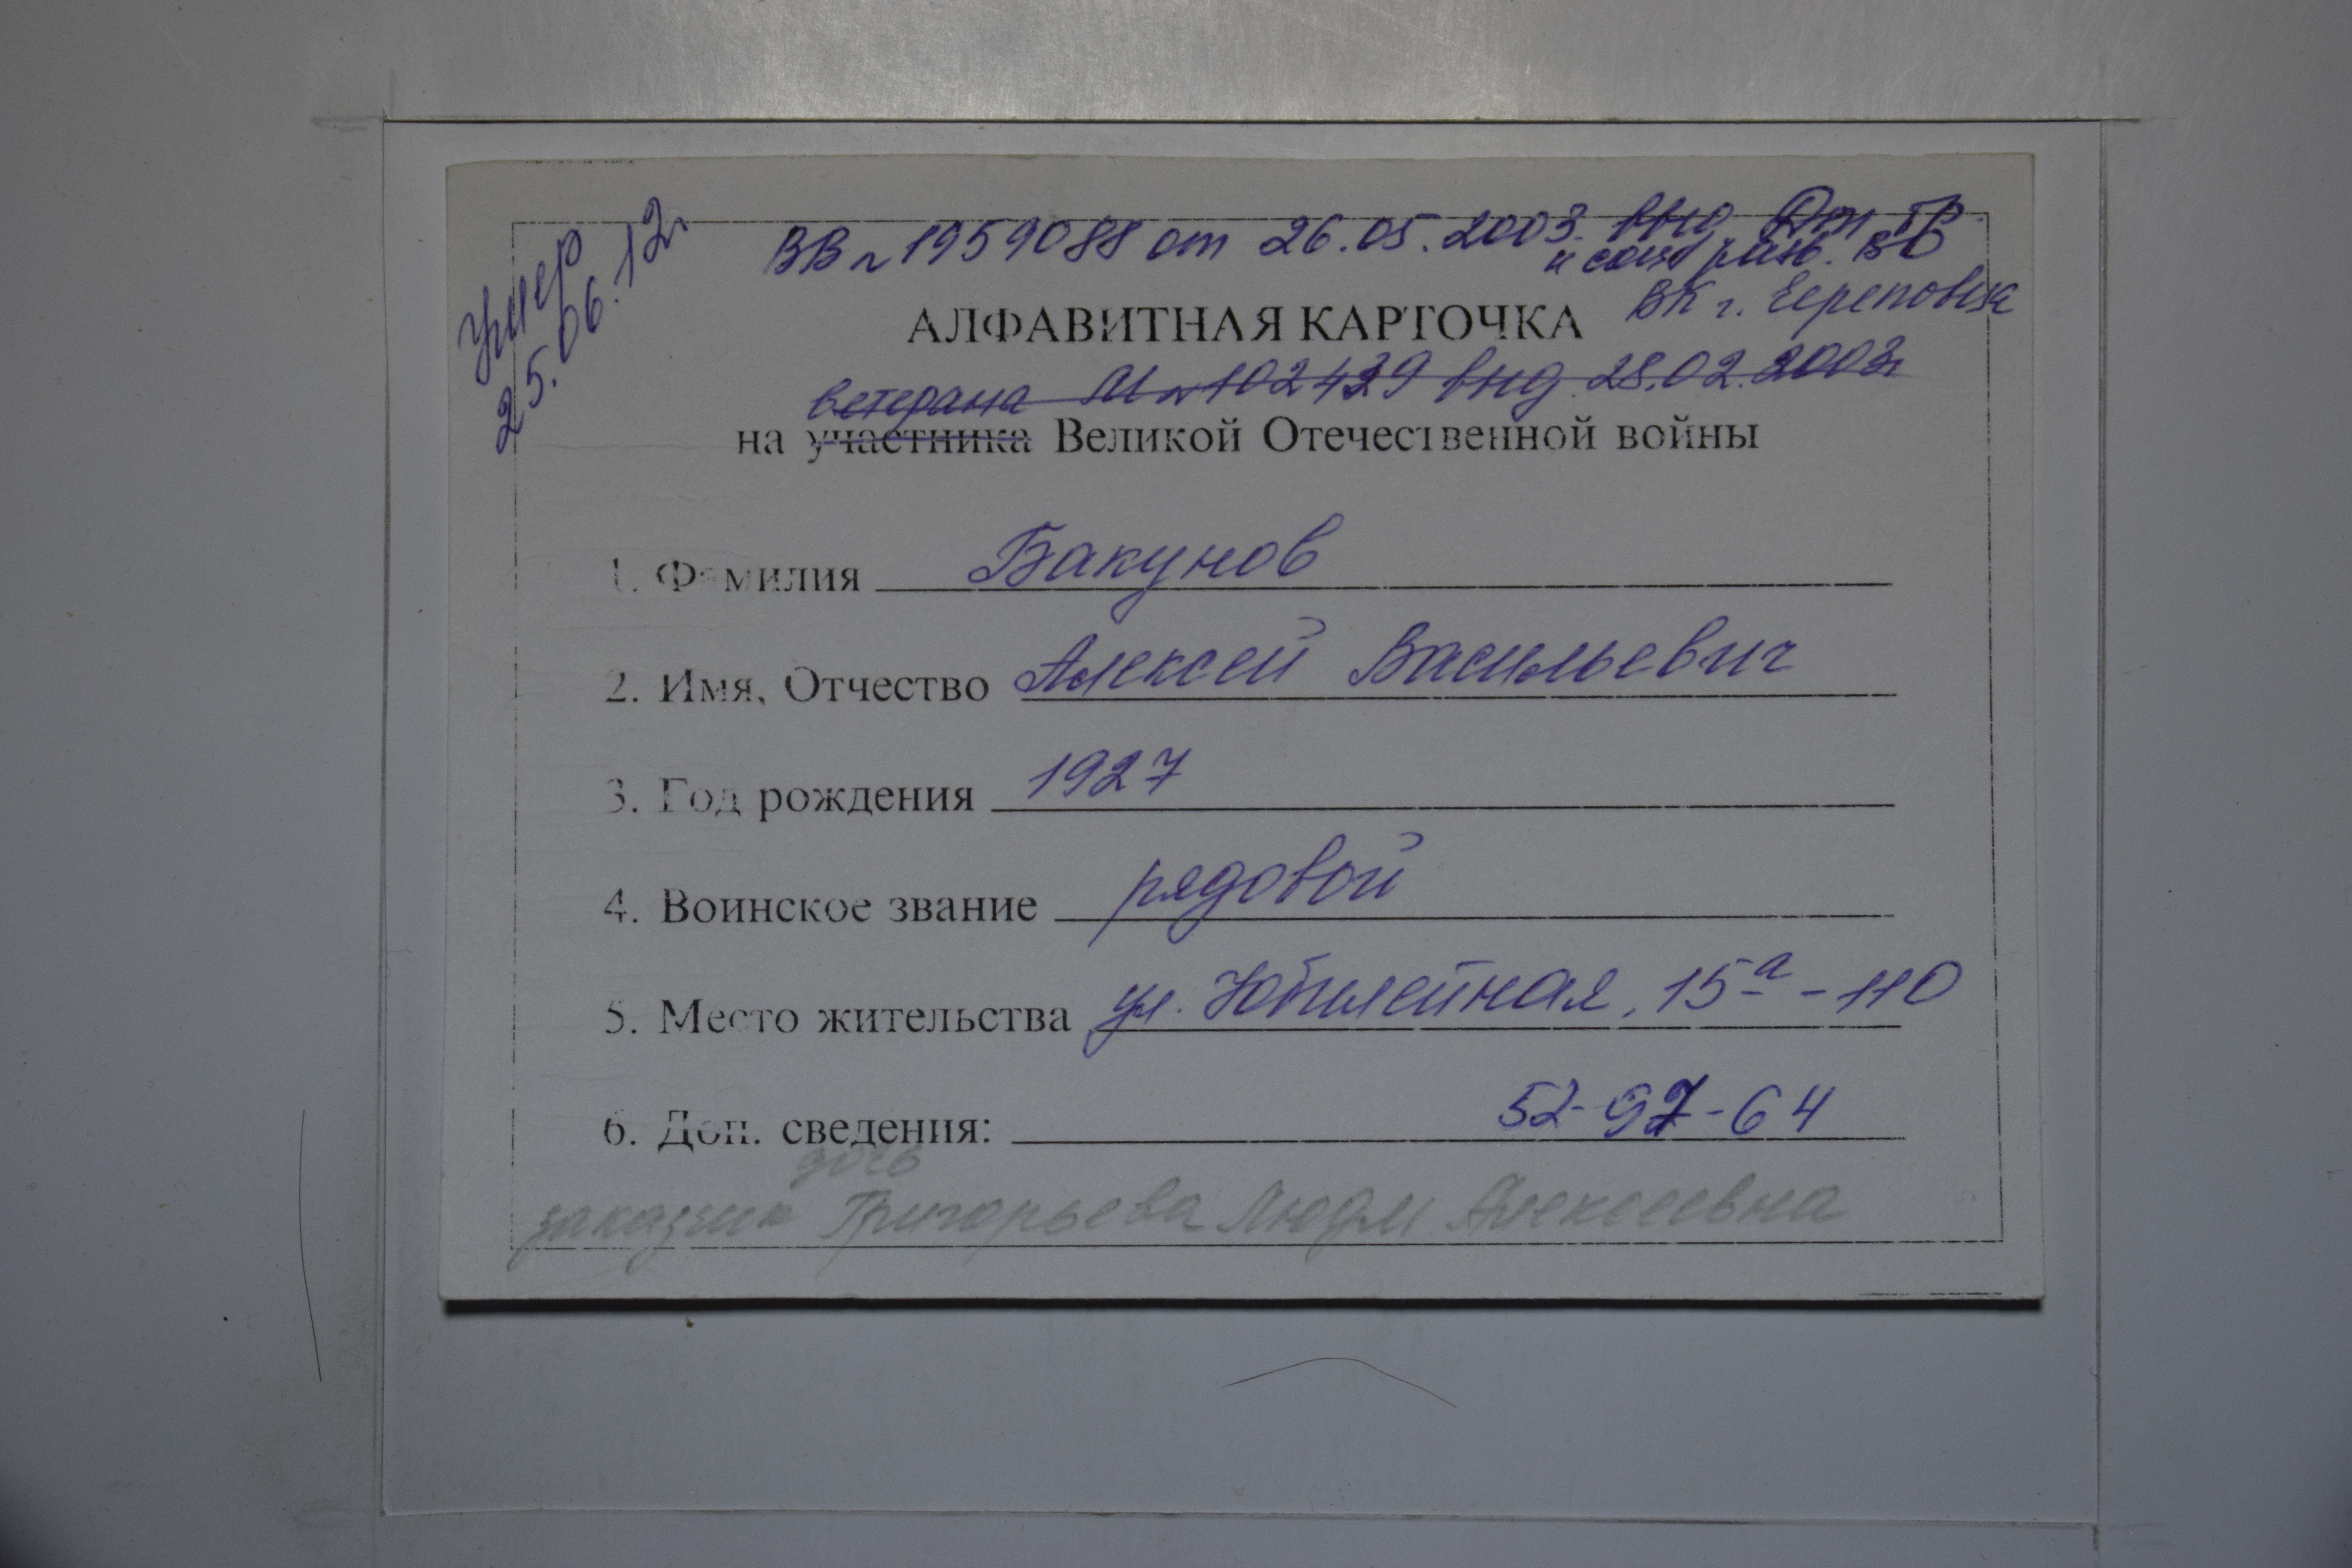 Умер
25.06.12г
ВВ № 1959088 от 26.05.2003. внд Деп тр.
и соц. ВО
ВК г. Череповца
АЛФАВИТНАЯ КАРТОЧКА
ветерана М № 102429 внд. 28.02.2003г
на участника Великой Отечественной войны
1. Фамилия Бакунов
2. Имя, Отчество Алексей Васильевич
3. Год рождения 1927
4. Воинское звание рядовой
5. Место жительства ул. Юбилейная, 15а - 110
6. Доп. сведения: 52-97-64
дочь
заказчик Григорьева Людм Алексеевна